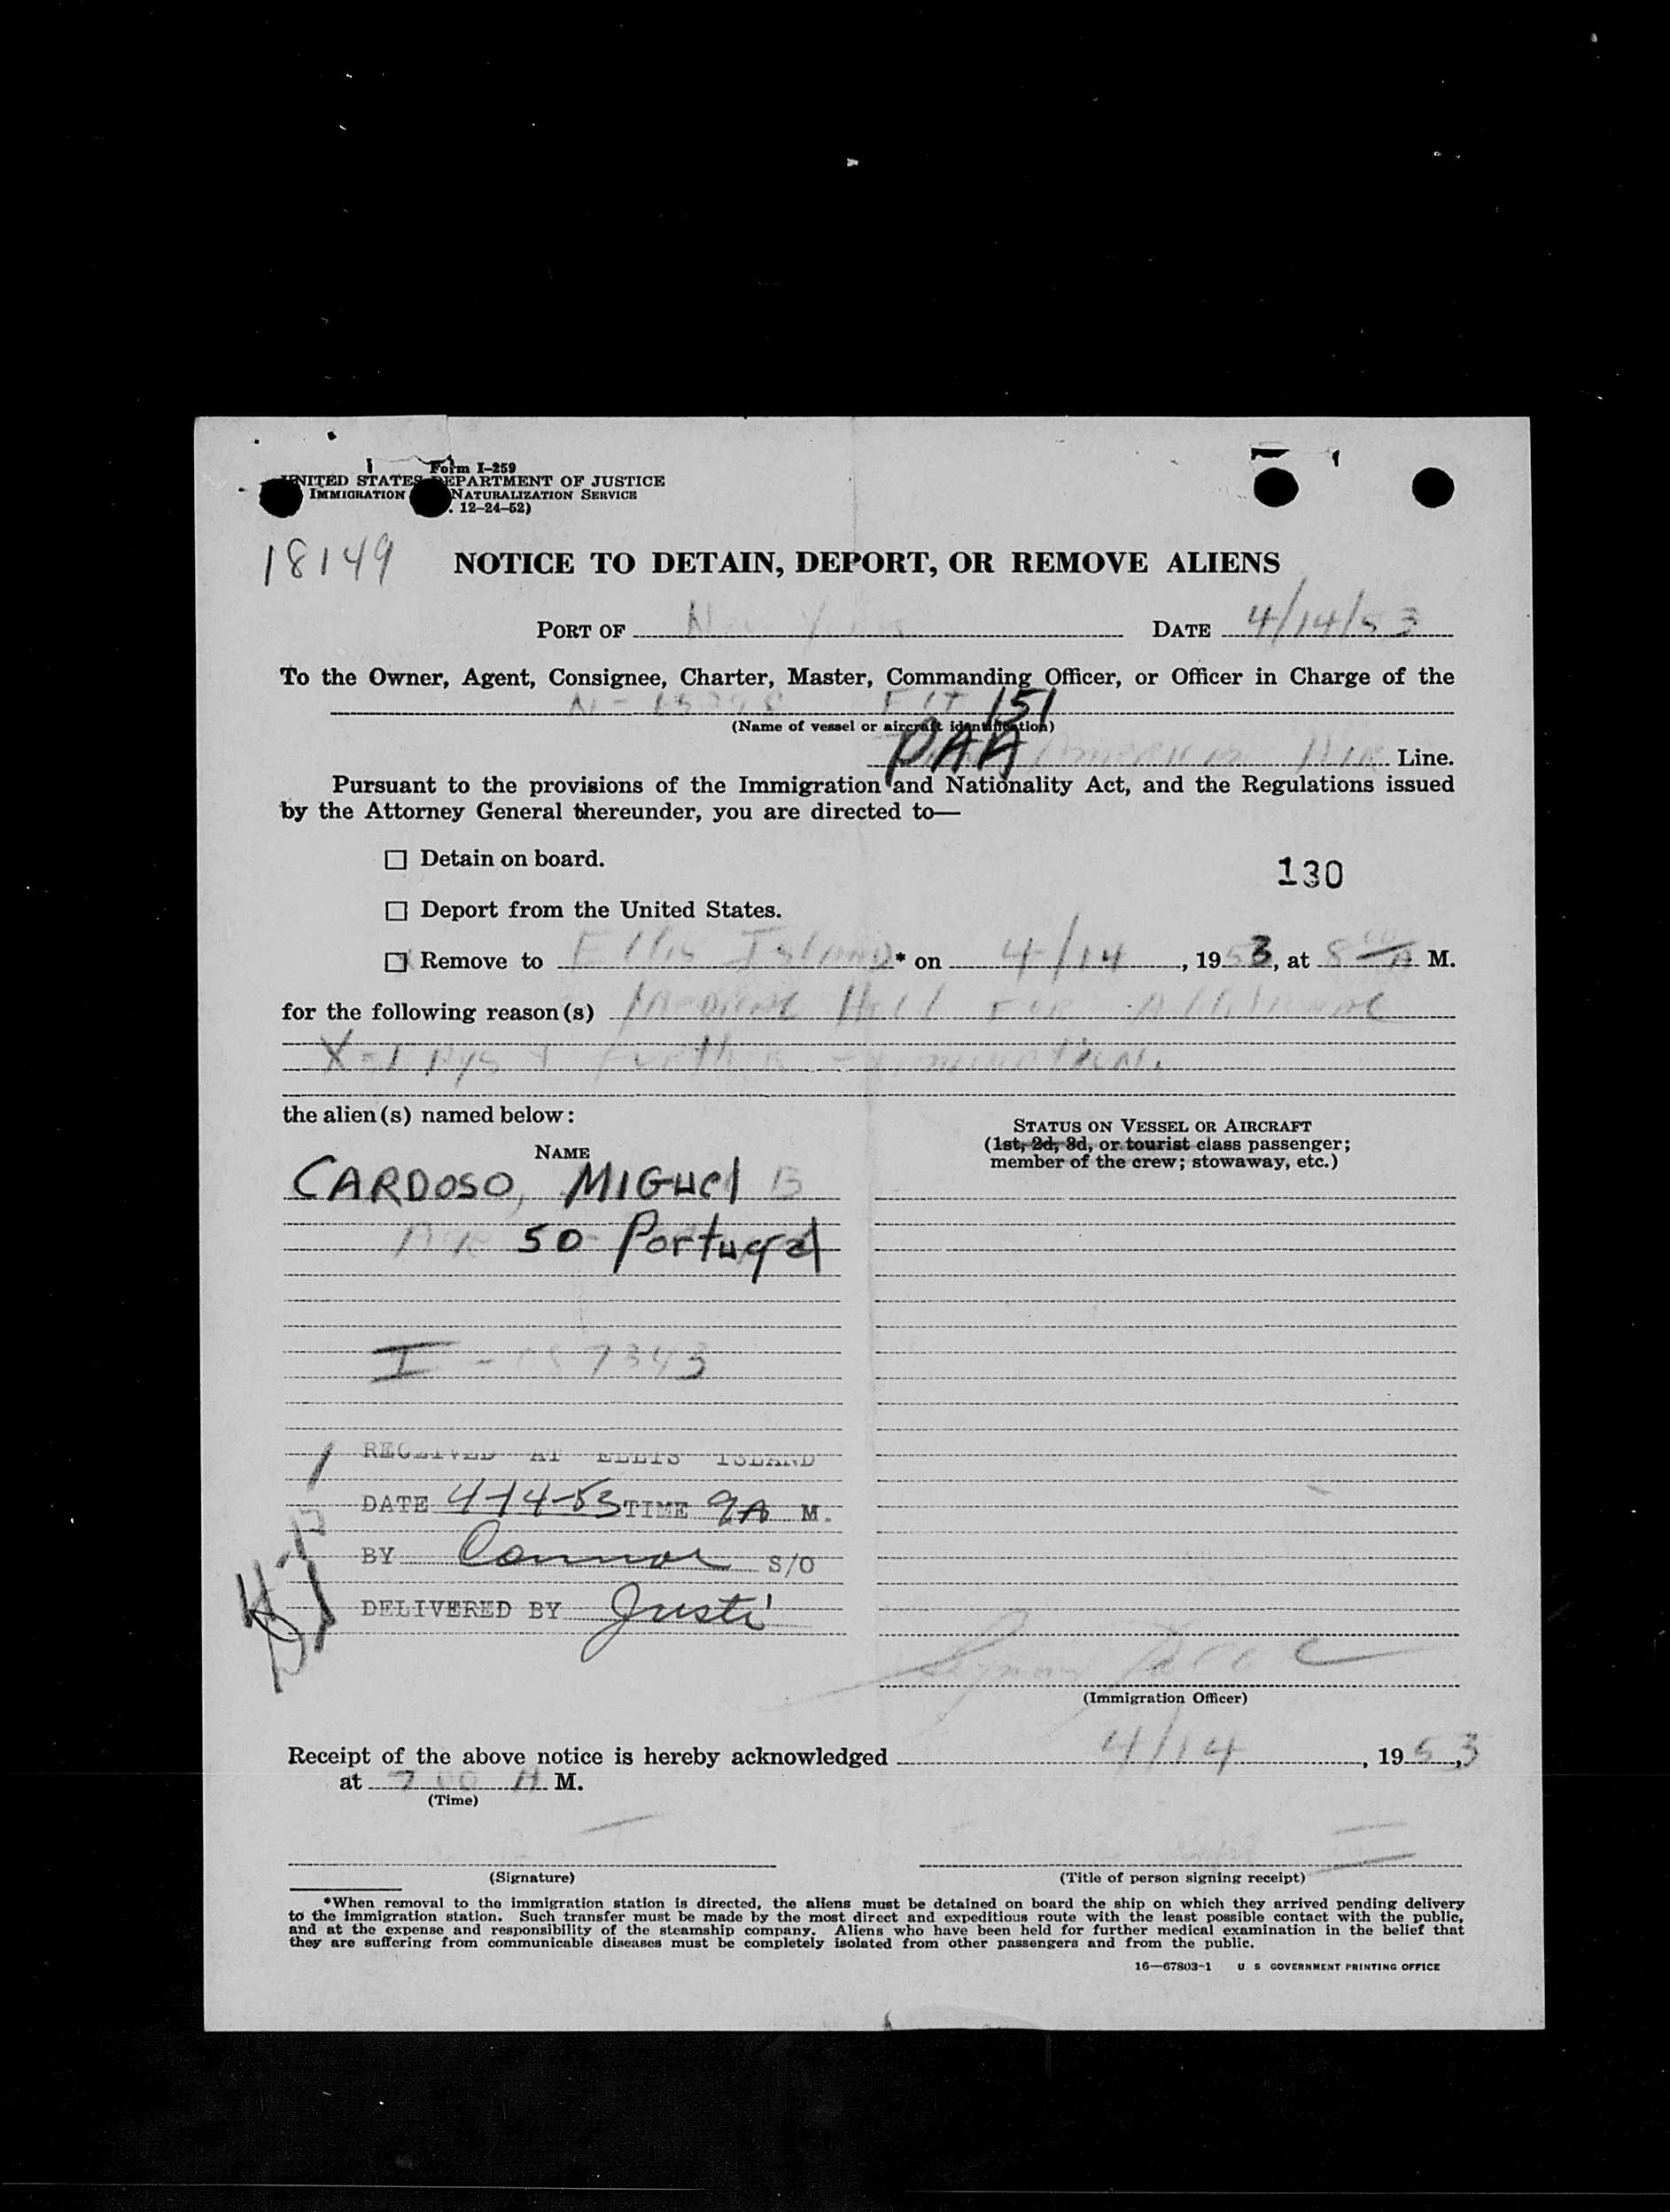 Form I-259
UNITED STATES DEPARTMENT OF JUSTICE
IMMIGRATION NATURALIZATION SERVICE
. 12-24-52)
18149
NOTICE TO DETAIN, DEPORT, OR REMOVE ALIENS
PORT OF New York DATE 4/14/53
To the Owner, Agent, Consignee, Charter, Master, Commanding Officer, or Officer in Charge of the
Flt 151
(Name of vessel or aircraft identification)
PAA American Air Line.
Pursuant to the provisions of the Immigration and Nationality Act, and the Regulations issued
by the Attorney General thereunder, you are directed to—
Detain on board.
130
Deport from the United States.
Remove to Ellis Island* on 4/14, 1953, at 8 00 A M.
for the following reason(s) Medical Hold For Additional
X-Rays + further examination.
the alien(s) named below:
STATUS ON VESSEL OR AIRCRAFT
(1st, 2d, 3d, or tourist class passenger;
member of the crew; stowaway, etc.)
NAME
CARDOSO, MIGUEl B
50 Portugal
I - 7343
RECEIVED AT ELLIS ISLAND
DATE 4-14-53 TIME 9A M.
BY Connor S/O
DELIVERED BY Justi
(Immigration Officer)
Receipt of the above notice is hereby acknowledged 4/14, 1953,
at 7 00 A M.
(Time)
(Signature) (Title of person signing receipt)
*When removal to the immigration station is directed, the aliens must be detained on board the ship on which they arrived pending delivery
to the immigration station. Such transfer must be made by the most direct and expeditious route with the least possible contact with the public,
and at the expense and responsibility of the steamship company. Aliens who have been held for further medical examination in the belief that
they are suffering from communicable diseases must be completely isolated from other passengers and from the public.
16—67803-1 U S GOVERNMENT PRINTING OFFICE